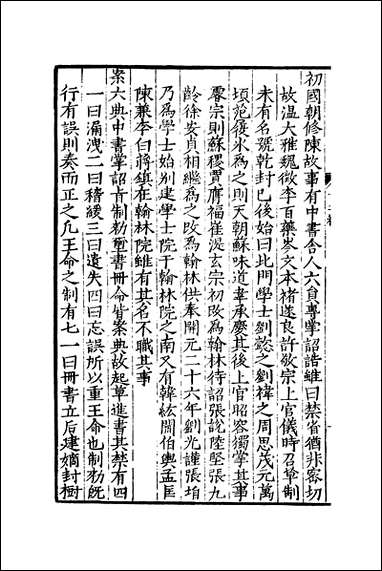 初國朝修陳故事有中書舍人六員專掌詔誥雖曰禁省猶非密切
故温大雅魏徵李百藥岑文本褚遂良許敬宗上官儀時召草制
未有名號乾封已後始曰北門學士劉懿之劉禕之周思茂元萬
頃范履氷為之則天朝蘇味道韋承慶其後上官昭容獨掌其事
睿宗則蘇稷賈膺福崔湜玄宗初改為翰林待詔張說陸堅張九
齡徐安貞相繼為之改為翰林供奉開元二十六年劉光謙張垍
乃為學士始別建學士院于翰林院之南又有韓紘閻伯輿孟匡
陳兼李白蔣鎮在翰林院雖有其名不職其事
案六典中書掌詔旨制勑璽書冊命皆案典故起草進書其禁有四
一曰漏洩二曰稽緩三曰遺失四曰忘誤所以重王命也制勑旣
行有誤則奏而正之凡王命之制有七一曰冊書立后建嫡封樹